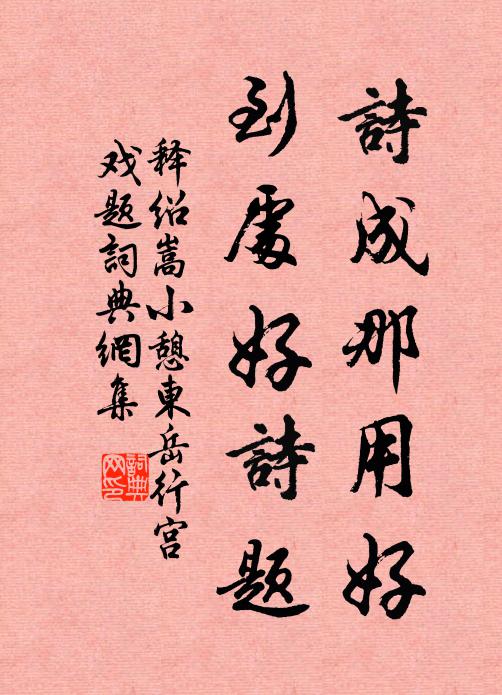 詩成那用好
到處好詩題
释绍嵩小憩東岳行宫
戏题詞典網集
詞典网印